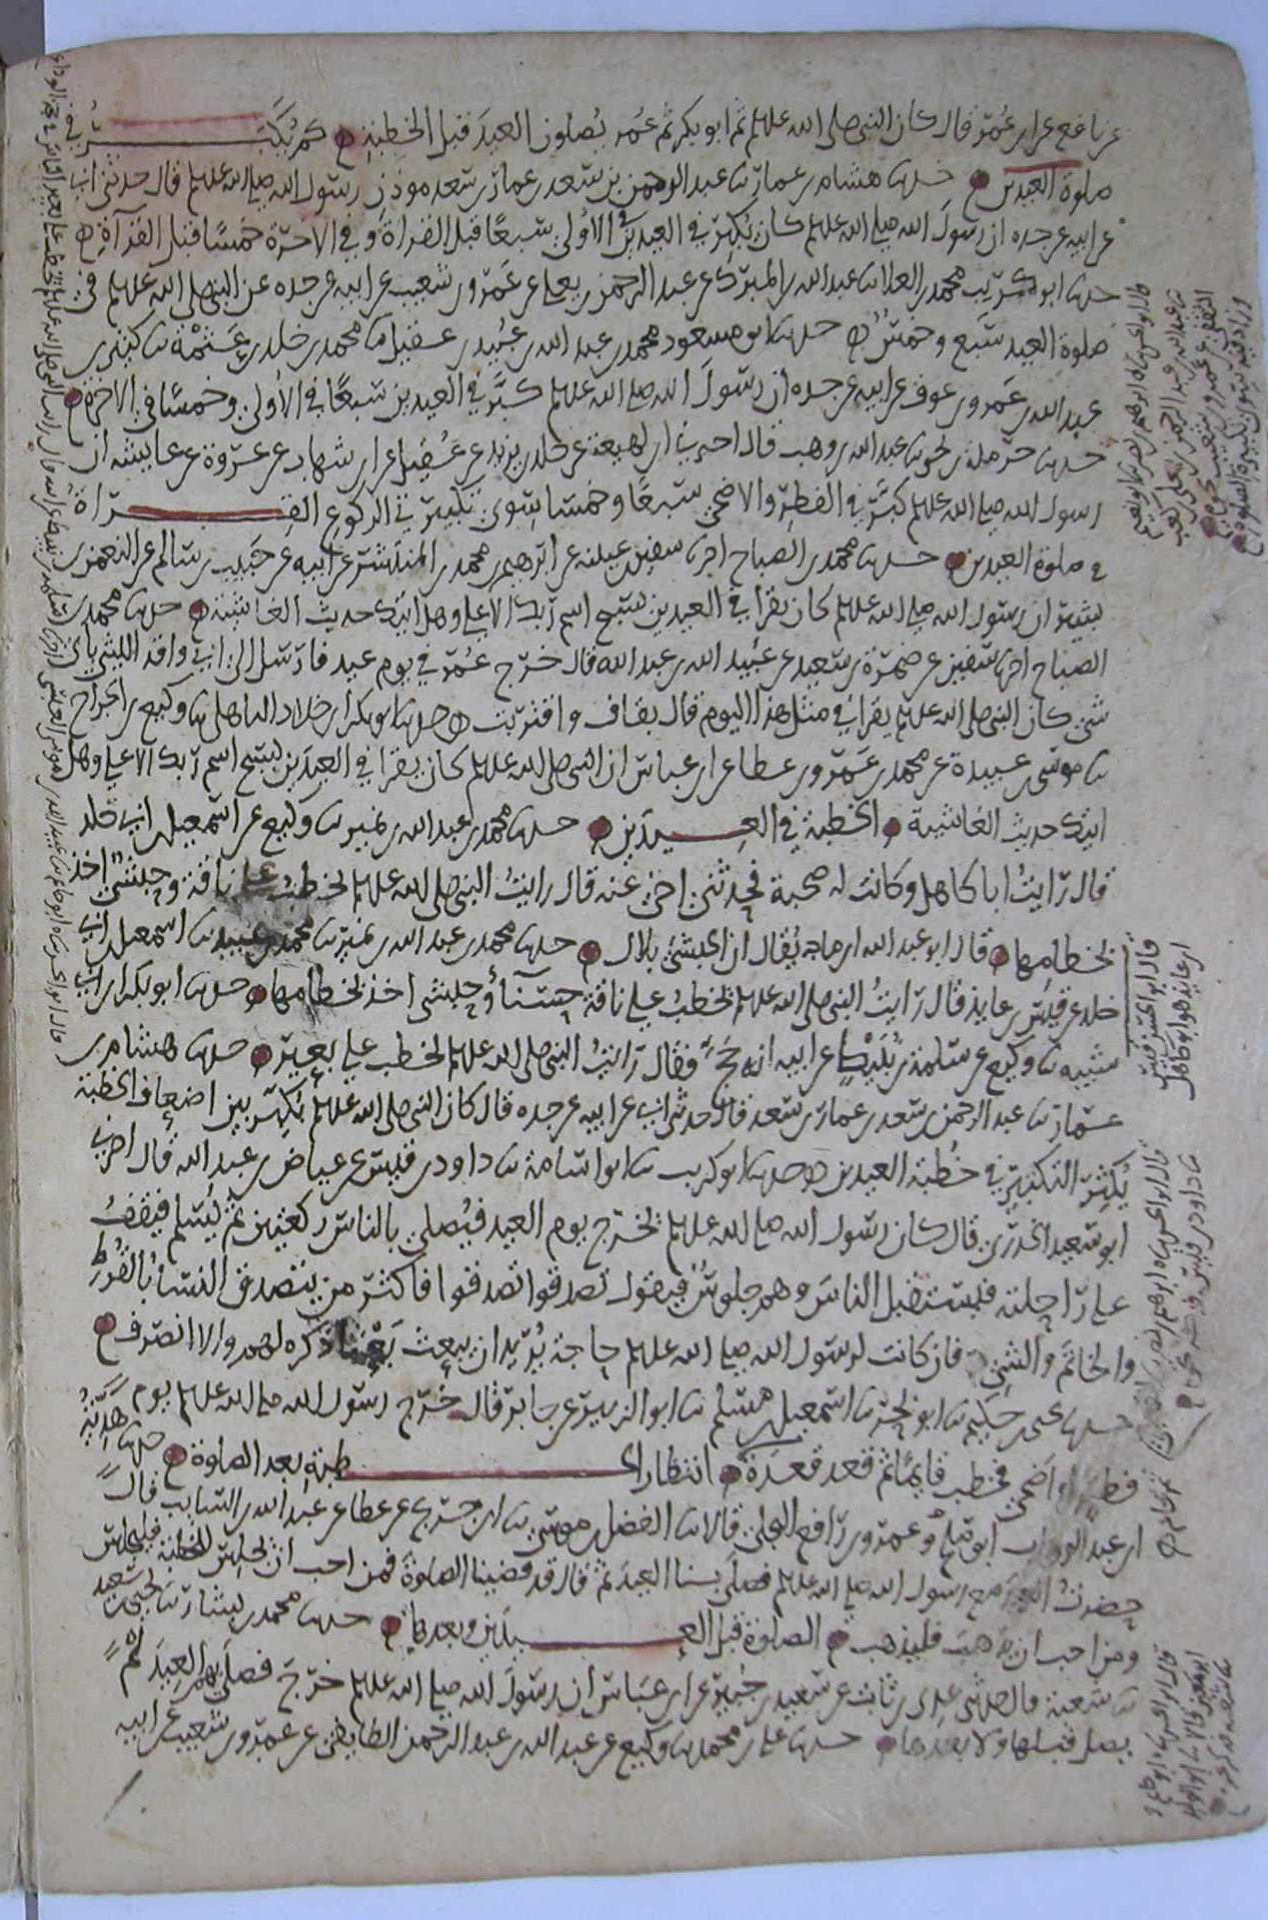 عن نافع عن ابن عمر قال كان النبي صلى الله عليه وسلم ثم ابو بكر ثم عمر يصلون العيد قبل الخطبة كم يكبر في
صلوة العيدين حدثنا هشام بن عمار ثنا عبد الرحمن بن سعد بن عمار بن سعد موذن رسول الله صلى الله عليه وسلم قال حدثني ابي
عن ابيه عن جده ان رسول الله صلى الله عليه وسلم كان يكبر في العيدين الاولى سبعا قبل القراة وفي الاخرة خمسا قبل القراة
حدثنا ابو كريب محمد بن العلا ثنا عبد الله بن المبارك عن عبد الرحمن بن يعلى عن عمرو بن شعيب عن ابيه عن جده عن النبي صلى الله عليه وسلم في
صلوة العيد سبع وخمس حدثنا ابو مسعود محمد بن عبد الله بن عبيد بن عقيل ثنا محمد بن خلد بن عثمة ثنا كثير بن
عبد الله بن عمرو بن عوف عن ابيه عن جده ان رسول الله صلى الله عليه وسلم كبر في العيدين سبعا في الاولى وخمسا في الاخرة
حدثنا حرملة بن يحيى ثنا عبد الله بن وهب قال اخبرني ابن لهيعة عن خلد بن يزيد عن عقيل عن ابن شهاب عن عروة عن عايشة ان
رسول الله صلى الله عليه وسلم كبر في الفطر والاضحى سبعا وخمسا سوى تكبير في الركوع القراة
في صلوة العيدين حدثنا محمد بن الصباح سفين بن عيينة عن ابرهيم بن محمد بن المنتشر عن ابيه عن حبيب بن سالم عن النعمن بن
بشير ان رسول الله صلى الله عليه وسلم كان يقرا في العيدين بسبح اسم ربك الاعلى وهل اتيك حديث الغاشية حدثنا محمد بن
الصباح سفين عن ضمرة بن سعيد عن عبيد الله بن عبد الله قال خرج عمر في يوم عيد فارسل الى ابي واقد الليثي باي
شي كان النبي صلى الله عليه وسلم يقرا في مثل هذا اليوم قال بقاف واقتربت حدثنا ابو بكر بن خلاد الباهلي ثنا وكيع بن الجراح
ثنا موسى بن عبيدة عن محمد بن عمرو بن عطا عن ابن عباس ان النبي صلى الله عليه وسلم كان يقرا في العيدين بسبح اسم ربك الاعلى وهل
اتيك حديث الغاشية الخطبة في العيدين حدثنا محمد بن عبد الله بن نمير ثنا وكيع عن اسمعيل بن ابي خلد
قال رايت ابا كاهل وكانت له صحبة فحدثني اخي عنه قال رايت النبي صلى الله عليه وسلم يخطب على ناقة وحبشي اخذ
بخطامها قال ابو عبد الله ابن ماجه يقال ان الحبشي بلال حدثنا محمد بن عبد الله بن نمير ثنا محمد بن عبيد ثنا اسمعيل بن ابي
خلد عن قيس بن عايذ قال رايت النبي صلى الله عليه وسلم يخطب على ناقة حسنا وحبشي اخذ بخطامها حدثنا ابو بكر بن ابي
شيبه ثنا وكيع عن سلمة بن نبيط عن ابيه انه حج فقال رايت النبي صلى الله عليه وسلم يخطب على بعير حدثنا هشام بن
عمار ثنا عبد الرحمن بن سعد بن عمار بن سعد قال حدثني ابي عن ابيه عن جده قال كان النبي صلى الله عليه وسلم يكبر بين اضعاف الخطبة
يكثر التكبير في خطبة العيدين حدثنا ابو كريب ثنا ابو اسامة ثنا داود بن قيس عن عياض بن عبد الله قال اخبرني
ابو سعيد الخدري قال كان رسول الله صلى الله عليه وسلم يخرج يوم العيد فيصلي بالناس ركعتين ثم يسلم فيقف
على راحلته فيستقبل الناس وهم جلوس فيقول تصدقوا تصدقوا فاكثر من يتصدق النسا بالقرط
والخاتم والشي فان كانت لرسول الله صلى الله عليه وسلم حاجة يريد ان يبعث بعثا ذكره لهم والا انصرف
حدثنا يحيى بن حكيم ثنا ابو بحر ثنا اسمعيل بن مسلم ثنا ابو الزبير عن جابر قال خرج رسول الله صلى الله عليه وسلم يوم
فطر او اضحى فخطب قايما ثم قعد قعدة انتظار الخطبة بعد الصلوة حدثنا هدية
ابن عبد الوهاب ابو صالح وعمرو بن رافع البجلي قالا ثنا الفضل بن موسى ثنا ابن جريج عن عطا عن عبد الله بن السايب قال
حضرت العيد مع رسول الله صلى الله عليه وسلم فصلى بنا العيد ثم قال قد قضينا الصلوة فمن احب ان يجلس للخطبة فليجلس
ومن احب ان يذهب فليذهب الصلوة قبل العيدين وبعدها حدثنا محمد بن بشار ثنا يحيى بن سعيد
ثنا شعبة قال حدثني عدي بن ثابت عن سعيد بن جبير عن ابن عباس ان رسول الله صلى الله عليه وسلم خرج فصلى بهم العيد لم
يصل قبلها ولا بعدها حدثنا علي بن محمد ثنا وكيع عن عبد الله بن عبد الرحمن الطايفي عن عمرو بن شعيب عن ابيه
قال ابو الحسن قيس
ابن عايذ هو ابو كاهل